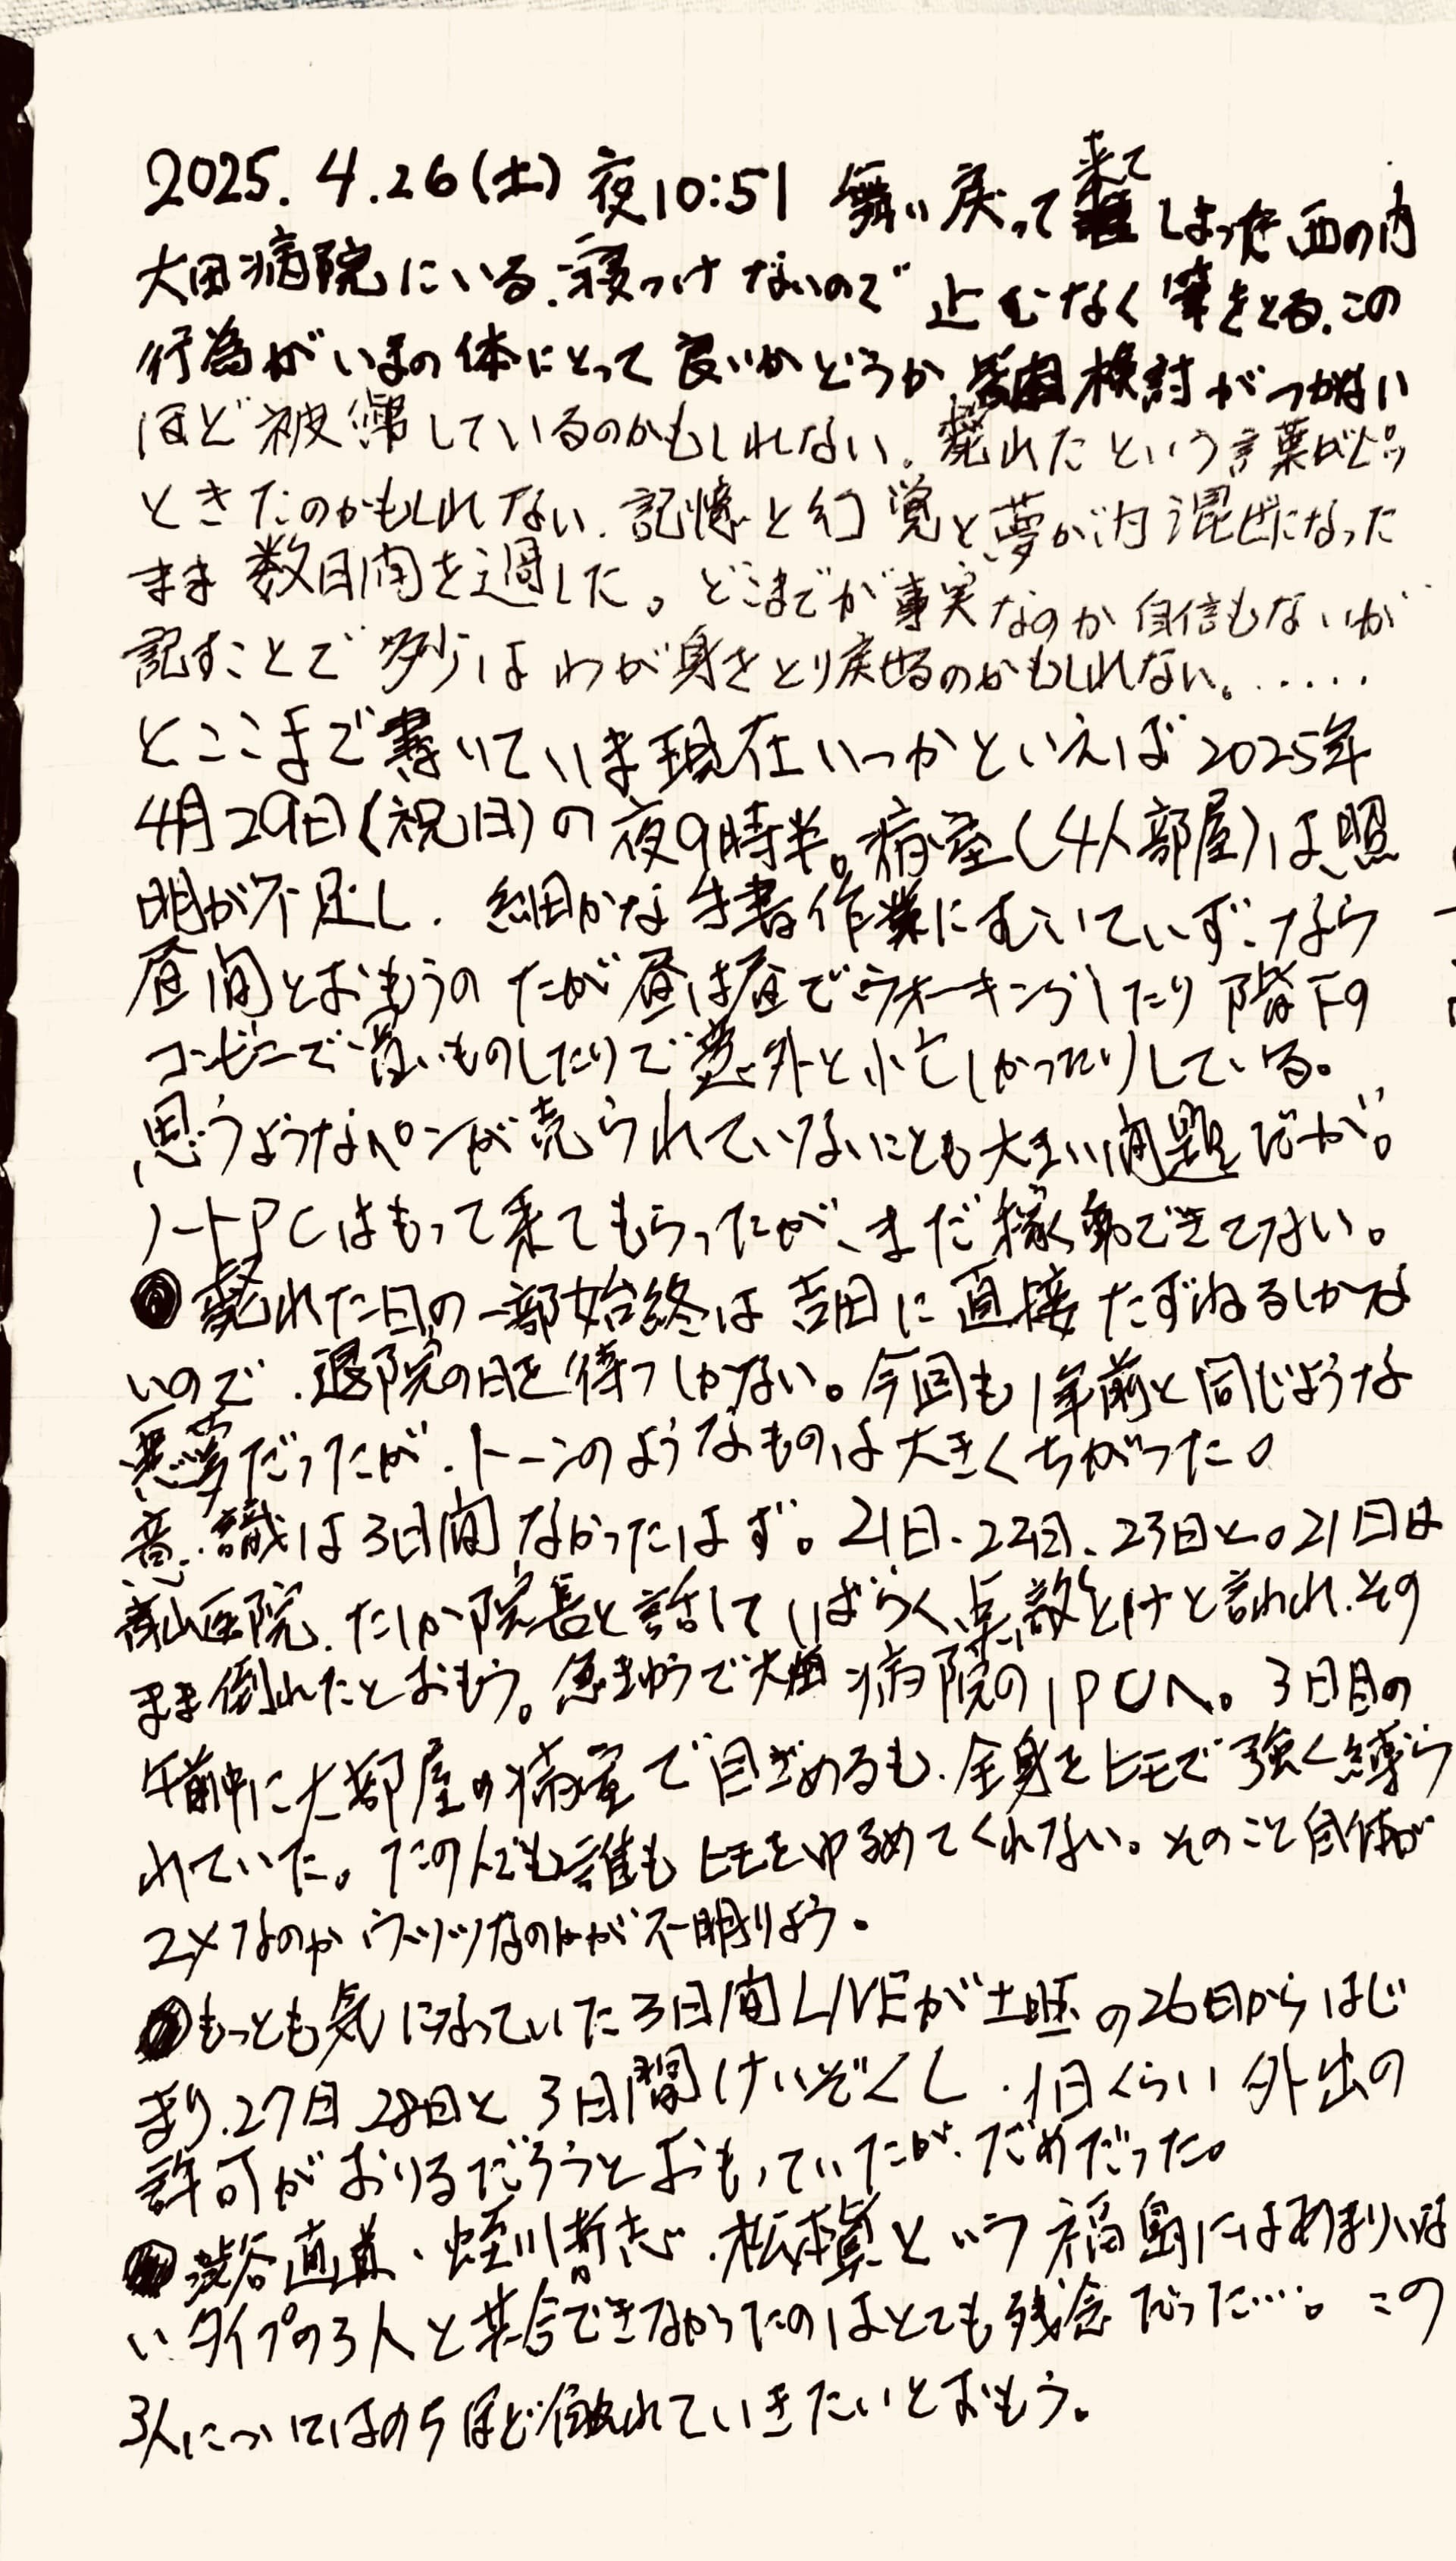 2025. 4.26(土) 夜10:51 舞い戻って来てしまった西の内
太田病院にいる.寝つけないので止むなく筆をとる.この
行為がいまの体にとって良いかどうか皆目検討がつかない
ほど被弊しているのかもしれない。斃れたという言葉がピッ
ときたのかもしれない.記憶と幻覚と夢が内混ぜになった
まま数日間を過した。どこまでが事実なのか自信もないが
記すことで多少はわが身をとり戻せるのかもしれない。.....
とここまで書いていま現在いつかといえば2025年
4月29日(祝日)の夜9時半。病室(4人部屋)は照
明が不足し.細かな作業にむいていず.なら
昼間とおもうのだが昼は昼でウォーキングしたり階下の
コンビニで買いものしたりで意外と忙しかったりしている。
思うようなペンが売られていないにも大きい問題だが。
ノートPCはもって来てもらったが、まだ稼動できてない。
斃れた日の一部始終は吉田に直接たずねるしかな
いので.退院の日を待つしかない。今回も1年前と同じような
悪夢だったが.トーンのようなものは大きくちがった。
意識は3日間なかったはず。21日、22日、23日と。21日は
青山医院.たしか院長と話してしばらく点滴をしてと言われ.その
まま倒れたとおもう。急きゅうで太田病院のIPUへ。3日目の
午前中に大部屋の病室で目ざめるも.全身をヒモで強く縛ら
れていた。たのんでも誰もヒモをゆるめてくれない。そのこと自体が
ユメなのかウツツなのかが不明りょう.
もっとも気になっていた3日間LIVEが土曜の26日からはじ
まり.27日28日と3日間けいぞくし.1日くらい外出の
許可がおりるだろうとおもっていたが.だめだった。
渋谷直道、蛭川哲志.松本真という福島にはあまりいな
いタイプの3人と共合できなかったのはとても残念だった…。この
3人についてはのちほど触れていきたいとおもう。